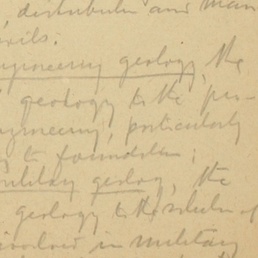 , distribution and man
oils:
ngineering geology, the
geology to the pur-
ngineering, particularly
to foundation;
military geology, the
geology to the solution of
involved in military